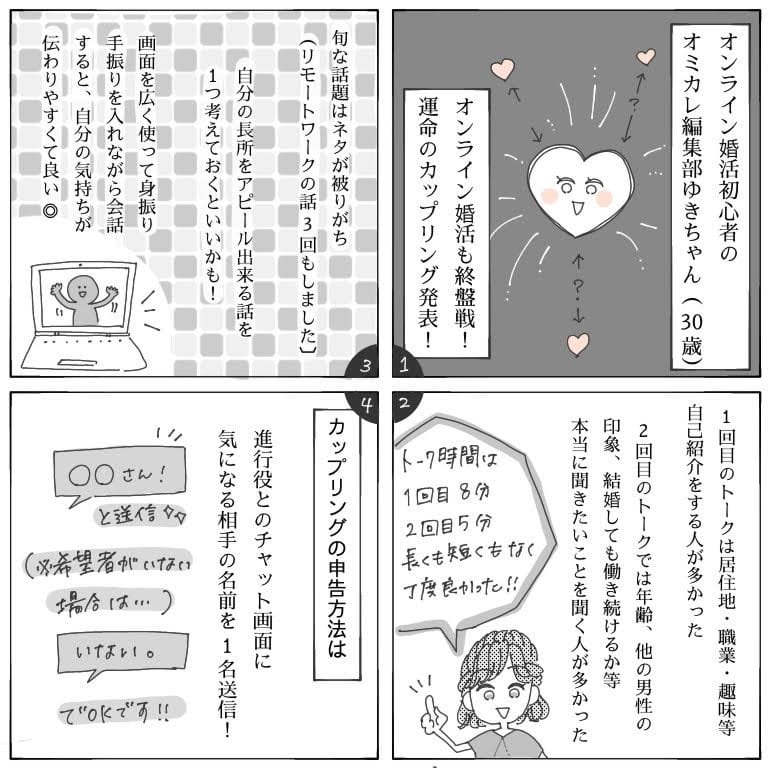 オンライン婚活初心者の
オミカレ編集部ゆきちゃん(30歳)
オンライン婚活も終盤戦!
運命のカップリング発表!
?
?
1
2
1回目のトークは居住地・職業・趣味等
自己紹介をする人が多かった
2回目のトークでは年齢、他の男性の
印象、結婚しても働き続けるか等
本当に聞きたいことを聞く人が多かった
トーク時間は
1回目8分
2回目5分
長くも短くもなく
丁度良かった!!
3
旬な話題はネタが被りがち
(リモートワークの話3回もしました)
自分の長所をアピール出来る話を
1つ考えておくといいかも!
画面を広く使って身振り
手振りを入れながら会話
すると、自分の気持ちが
伝わりやすくて良い◎
4
カップリングの申告方法は
進行役とのチャット画面に
気になる相手の名前を1名送信!
○○さん!
と送信
(※希望者がいない
場合は…)
いない。
でOKです!!